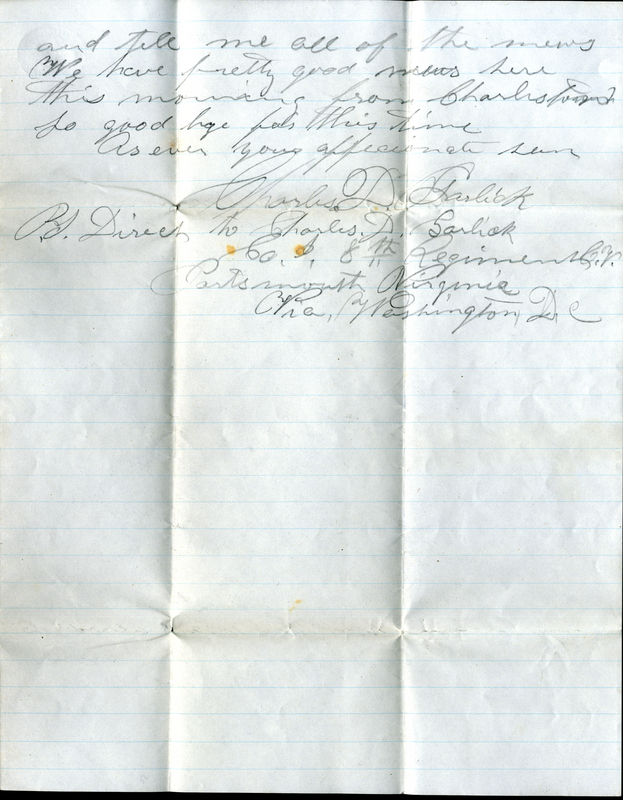 and tell me all of the news
We have pretty good news here
this morning from Charlestown
so good bye for this time
As ever your affecionate son
Charles D. Garlick
P.S. Direct to Charles. D. Garlick
Co. I. 8th Regiment C.V.
Portsmouth Virginia
Via, Washington, D C